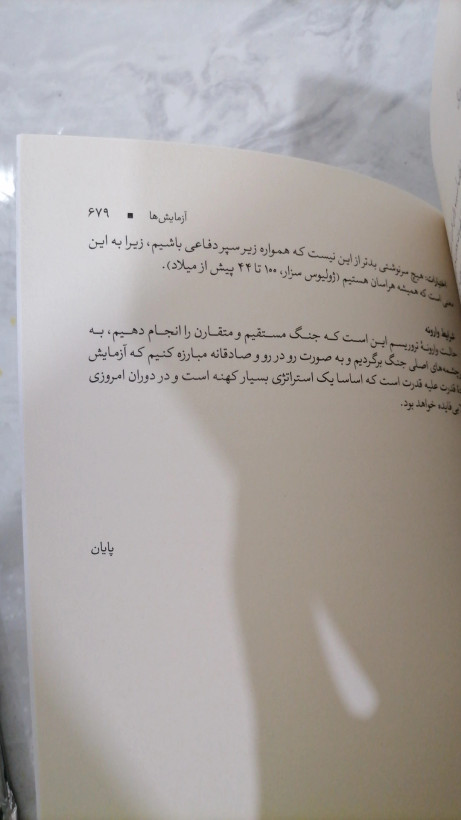 آزمایش‌ها ■ ۶۷۹
اظهارات: هیچ سرنوشتی بدتر از این نیست که همواره زیر سپر دفاعی باشیم، زیرا به این
است که همیشه هراسان هستیم (ژولیوس سزار، ۱۰۰ تا ۴۴ پیش از میلاد).
شرایط وارونه
حالت وارونهٔ تروریسم این است که جنگ مستقیم و متقارن را انجام دهیم، به
اصلی جنگ برگردیم و به صورت رو در رو و صادقانه مبارزه کنیم که آزمایش
قدرت علیه قدرت است که اساسا یک استراتژی بسیار کهنه است و در دوران امروزی
بی‌فایده خواهد بود.
پایان